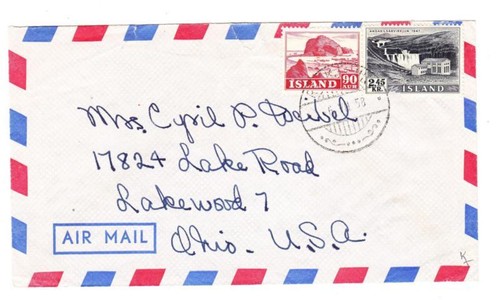 ÍSLAND 90 AUR
2.45 KR. ÍSLAND
58
Mrs. Cyril P. Deivel
17824 Lake Road
Lakewood 7
Ohio. U.S.A.
AIR MAIL